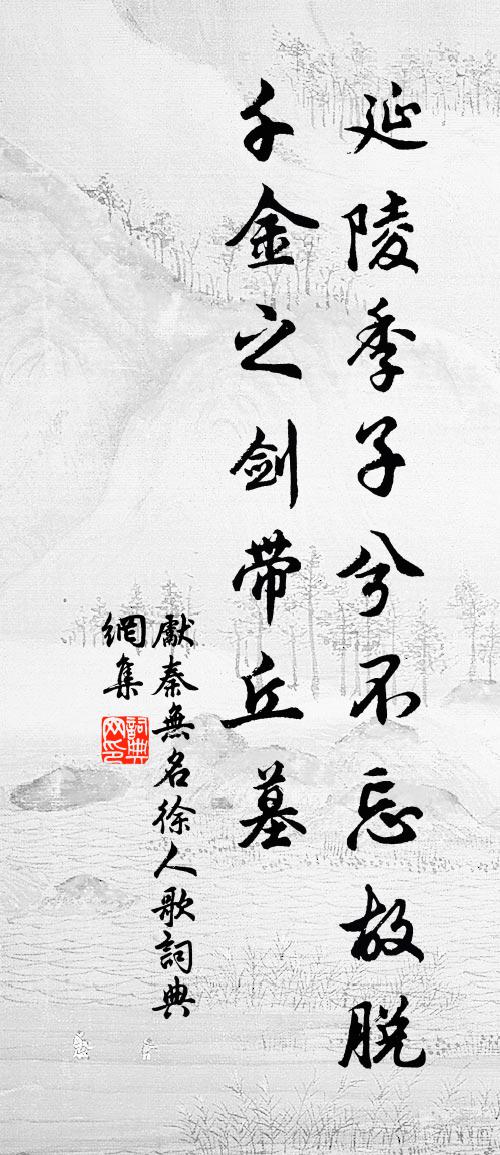 延陵季子兮不忘故脱
千金之劍帶丘墓
獻秦無名徐人歌詞典
網集
詞典
网印